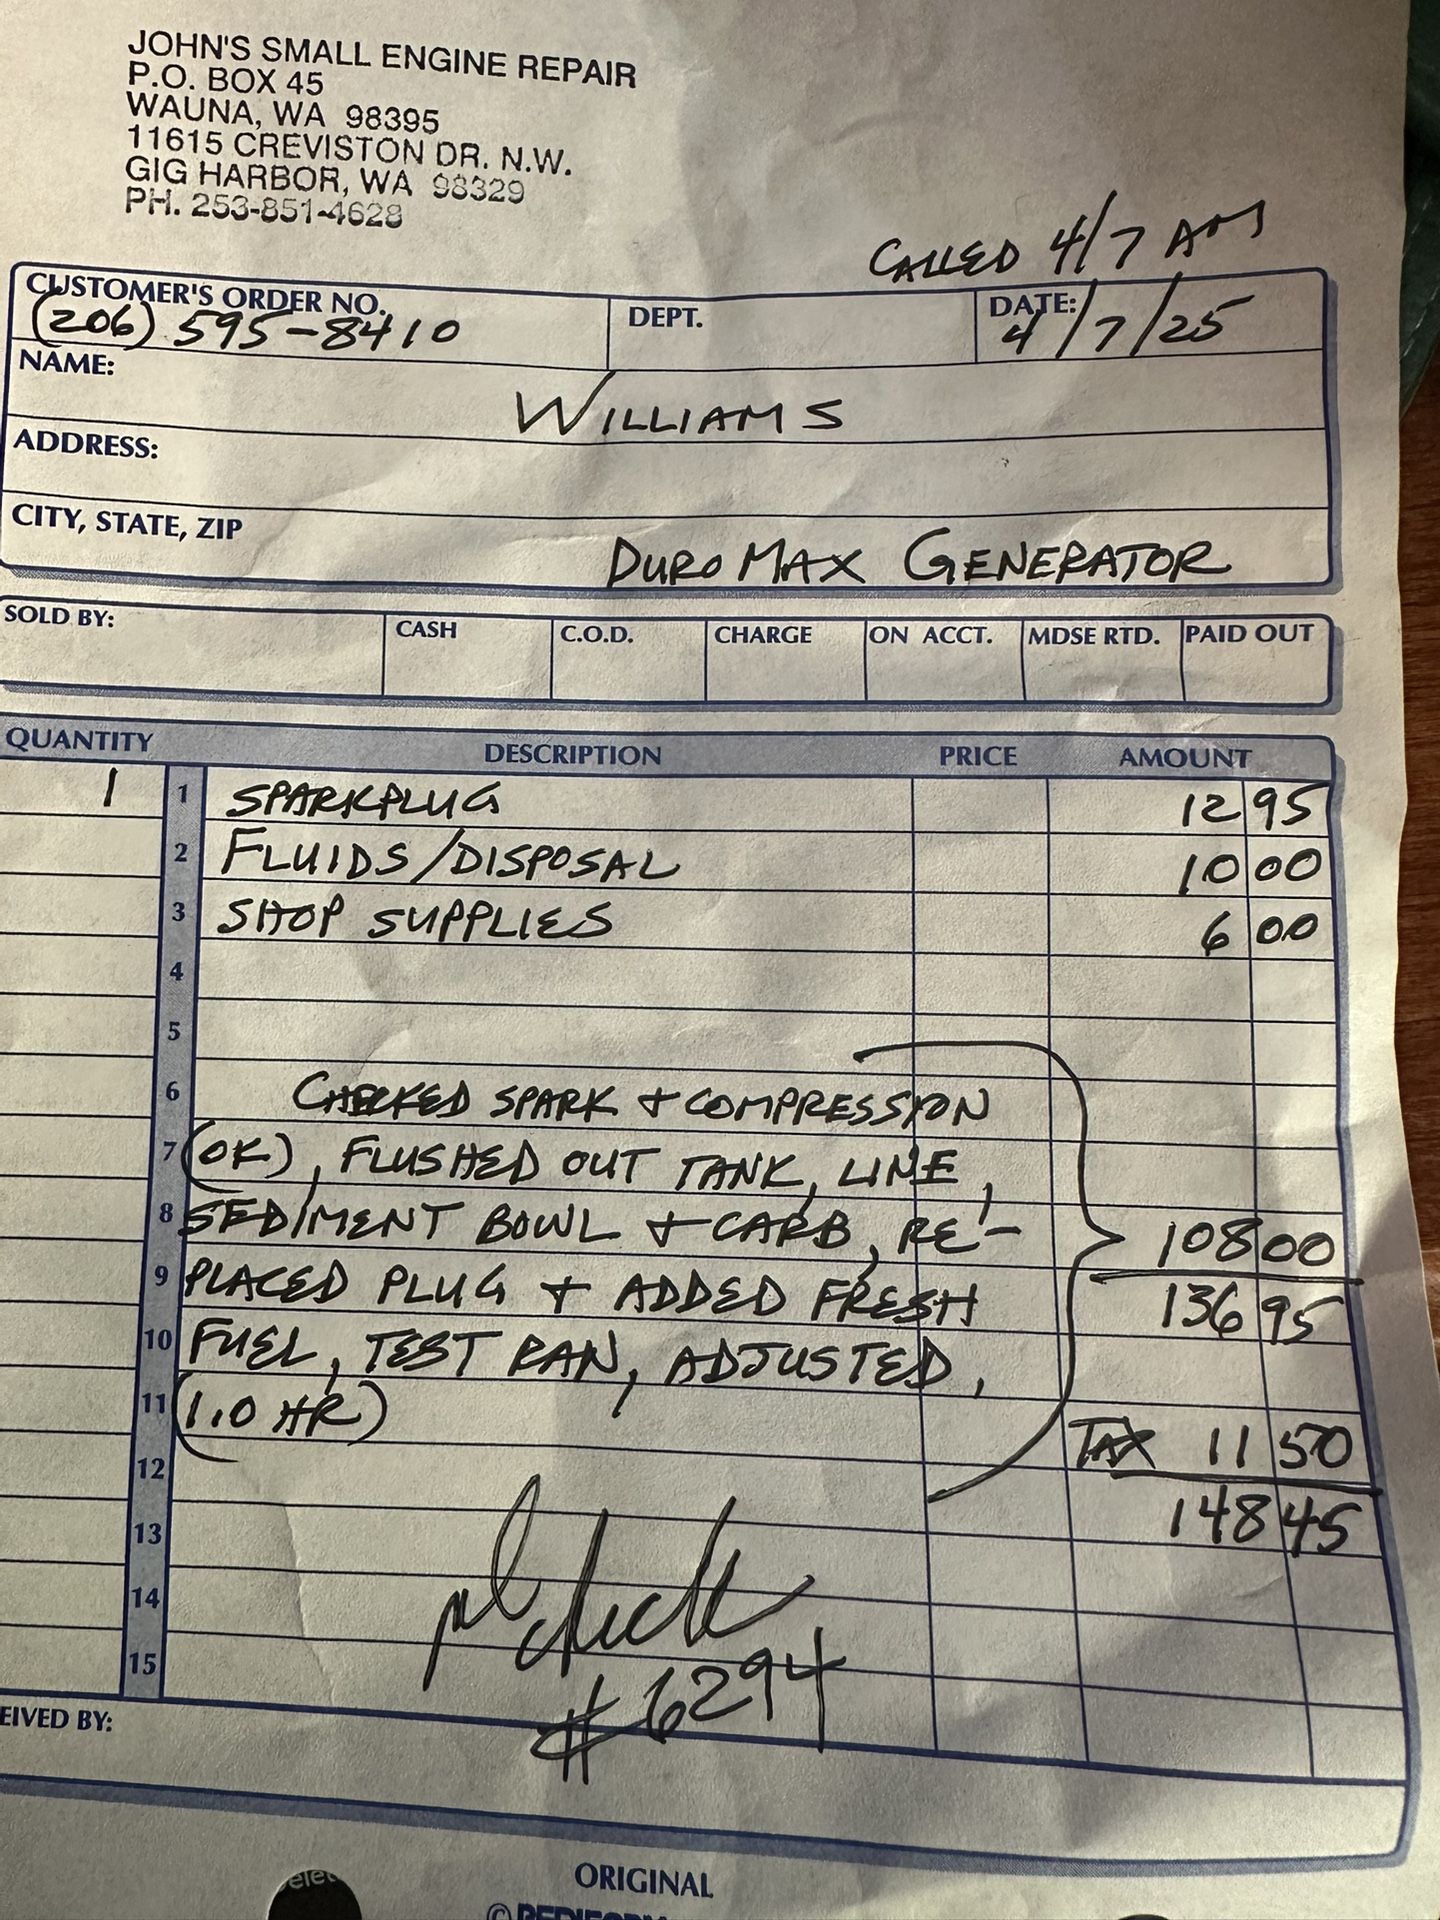 JOHN'S SMALL ENGINE REPAIR
P.O. BOX 45
WAUNA, WA 98395
11615 CREVISTON DR. N.W.
GIG HARBOR, WA 98329
PH. 253-851-4628
CALLED 4/7 AM
CUSTOMER'S ORDER NO. (206) 595-8410 DEPT. DATE: 4/7/25
NAME: WILLIAMS
ADDRESS:
CITY, STATE, ZIP DUROMAX GENERATOR
SOLD BY: CASH C.O.D. CHARGE ON ACCT. MDSE RTD. PAID OUT
QUANTITY DESCRIPTION PRICE AMOUNT
1 1 SPARKPLUG 12 95
2 FLUIDS/DISPOSAL 10 00
3 SHOP SUPPLIES 6 00
4
5
6 CHECKED SPARK + COMPRESSION
7 (OK), FLUSHED OUT TANK, LINE,
8 SEDIMENT BOWL + CARB, RE- 108 00
9 PLACED PLUG + ADDED FRESH 136 95
10 FUEL, TEST RAN, ADJUSTED,
11 (1.0 HR) TAX 11 50
12 148 45
13
14
15
pd check
#6294
EIVED BY:
elet
ORIGINAL
© REDIFORM